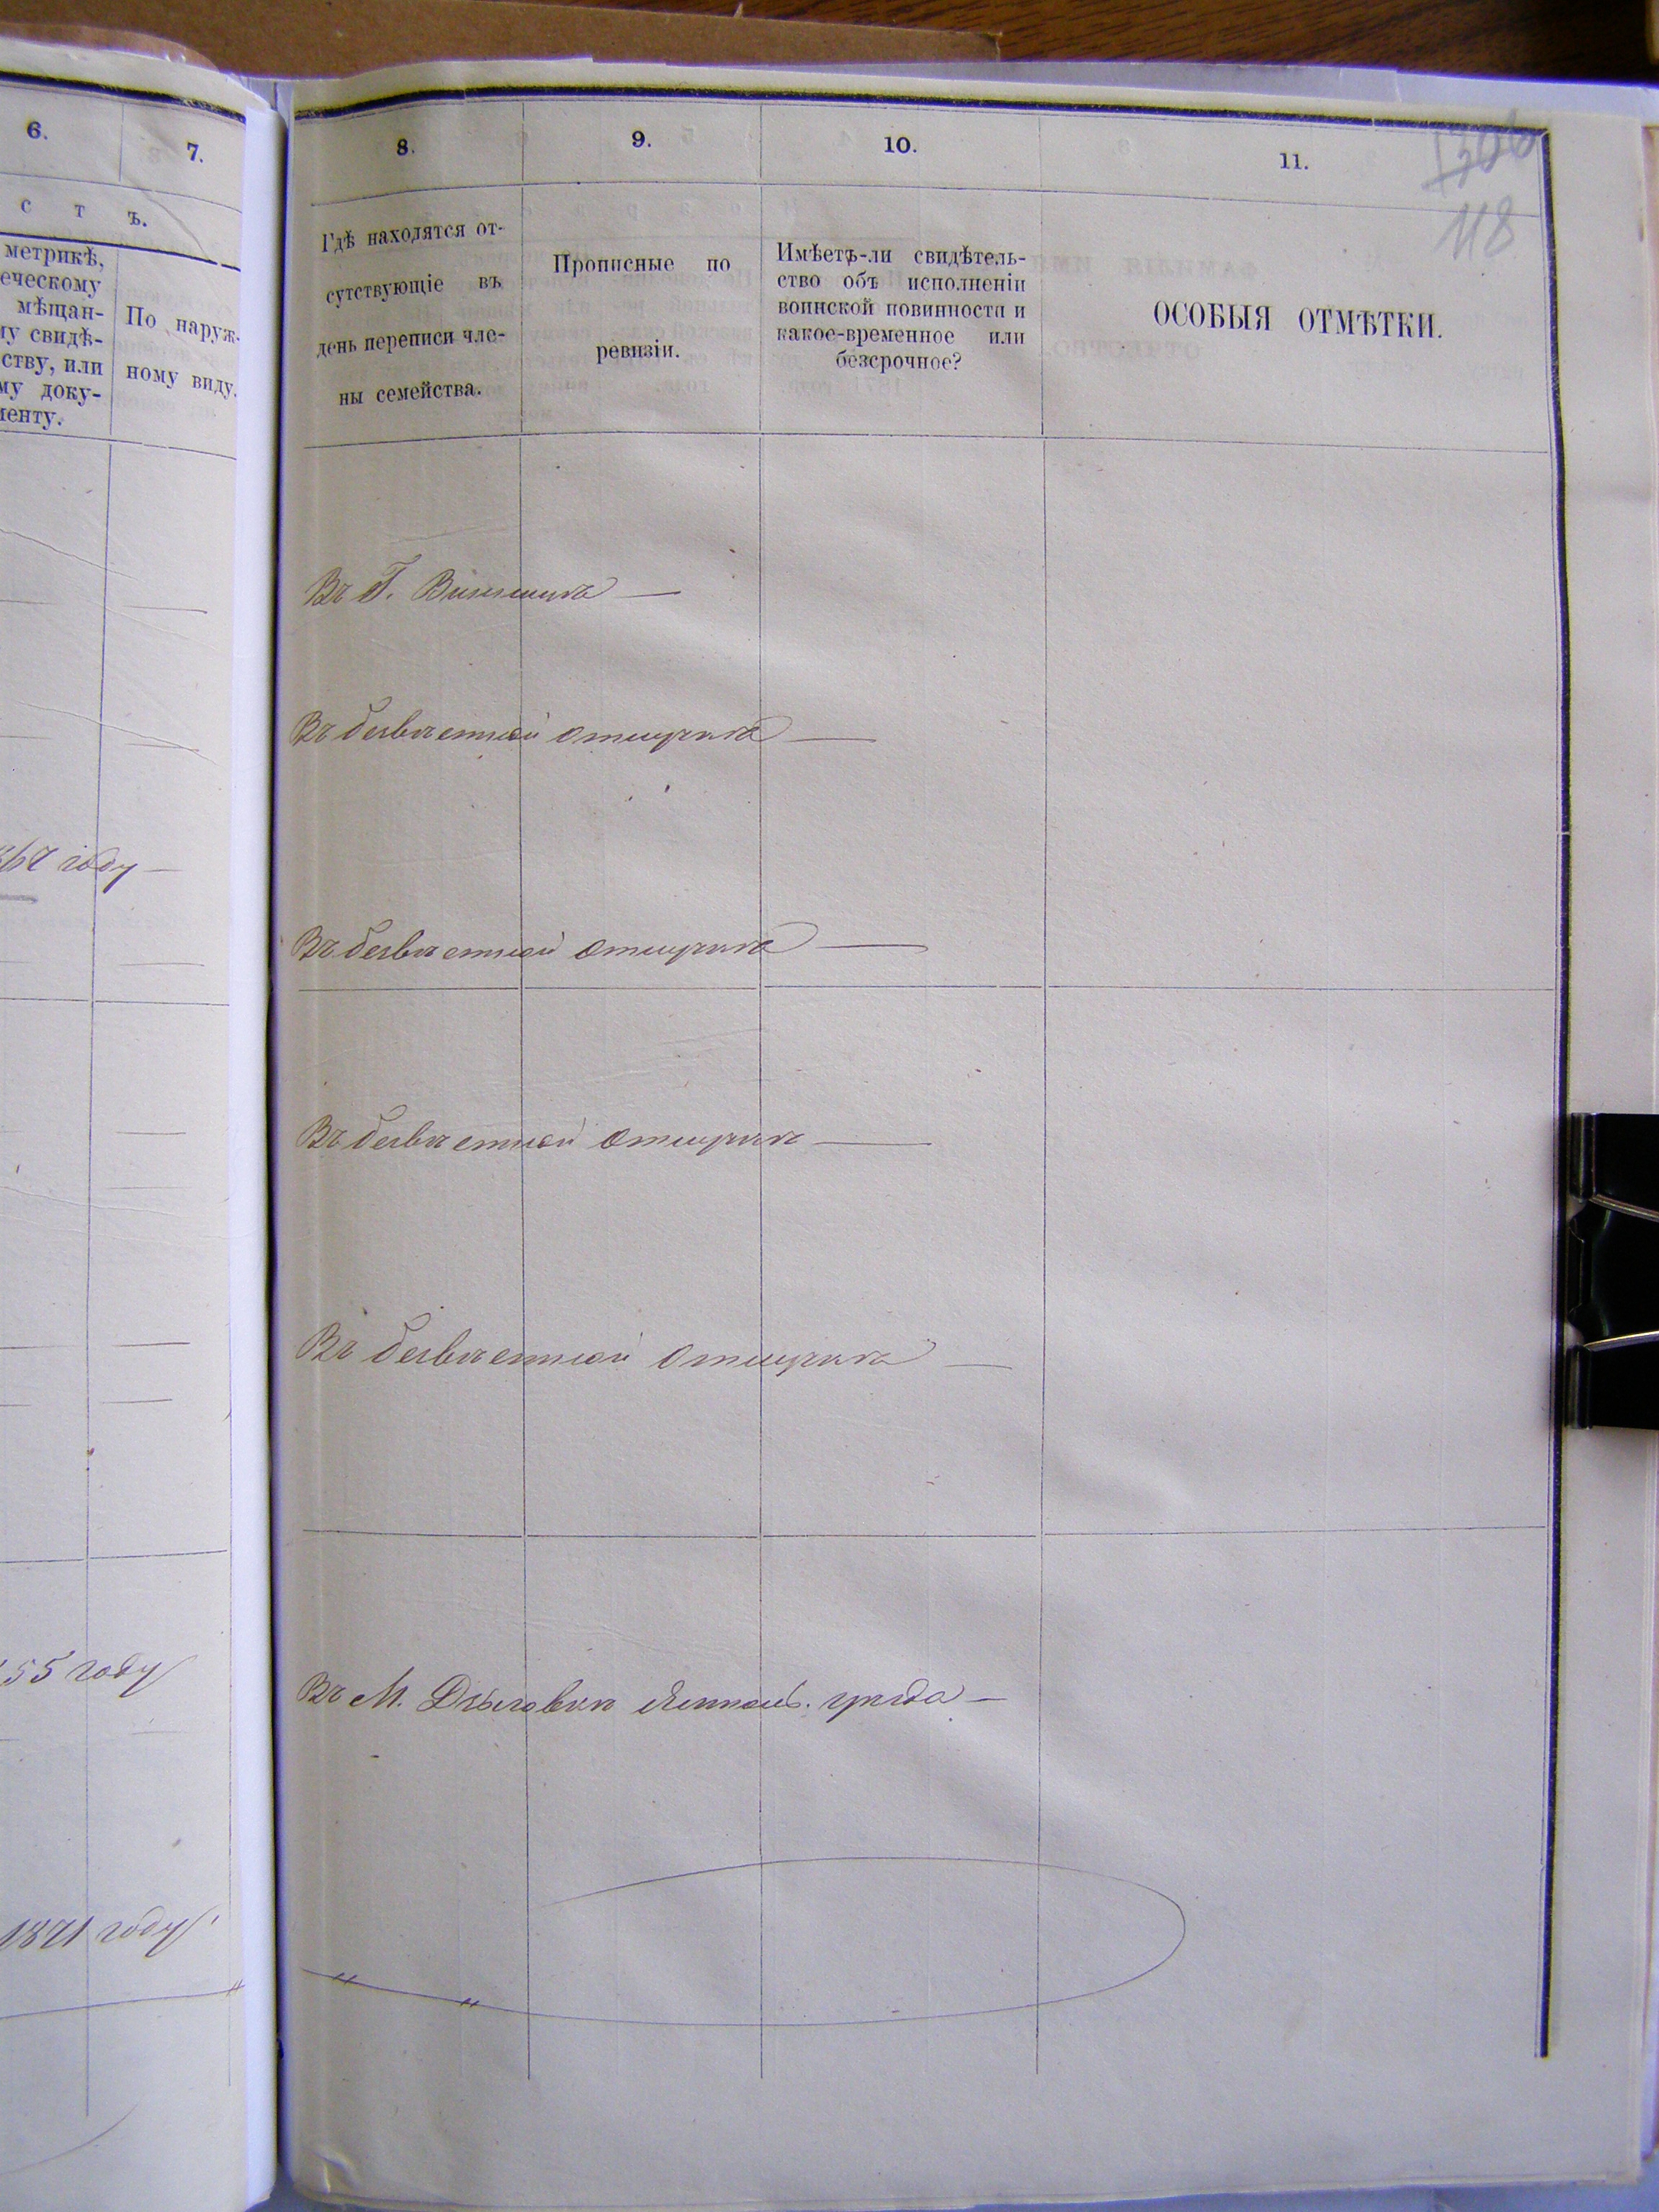 6.
7.
с т ъ.
метрикѣ,
еческому
мѣщан-
му свидѣ-
ству, или
му доку-
менту.
По наруж-
ному виду.
67 году
55 году
1871 году
8.
9.
10.
11.
118
Гдѣ находятся от-
сутствующіе въ
день переписи чле-
ны семейства.
Прописные по
ревизіи.
Имѣетъ-ли свидѣтель-
ство объ исполненіи
воинской повинности и
какое-временное или
безсрочное?
ОСОБЫЯ ОТМѢТКИ.
Въ Г. Винницѣ —
Въ безвѣстной отлучкѣ —
Въ безвѣстной отлучкѣ —
Въ безвѣстной отлучкѣ —
Въ безвѣстной отлучкѣ —
Въ М. Дзыговкѣ Ямполь. уѣзда —